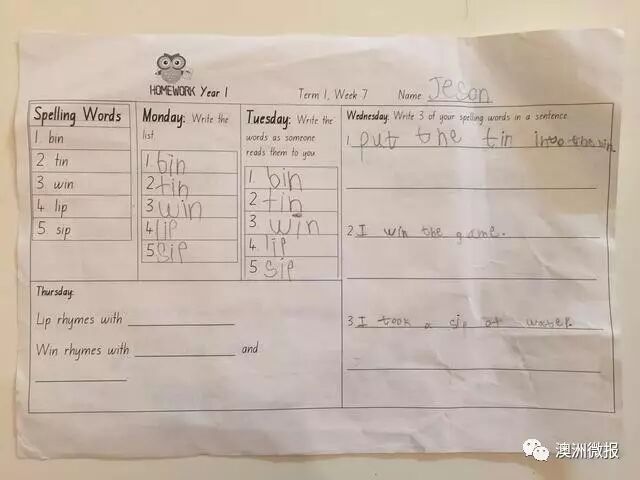 HOMEWORK Year 1
Term 1, Week 7
Name Jeson
Spelling Words
1 bin
2 tin
3 win
4 lip
5 sip
Monday: Write the
list.
1 bin
2 tin
3 win
4 lip
5 sip
Tuesday: Write the
words as someone
reads them to you
1. bin
2. tin
3. win
4. lip
5 sip
Wednesday: Write 3 of your spelling words in a sentence.
1. put the tin into the bin
2. I win the game.
3. I took a sip of water.
Thursday:
Lip rhymes with
Win rhymes with and
澳洲微报